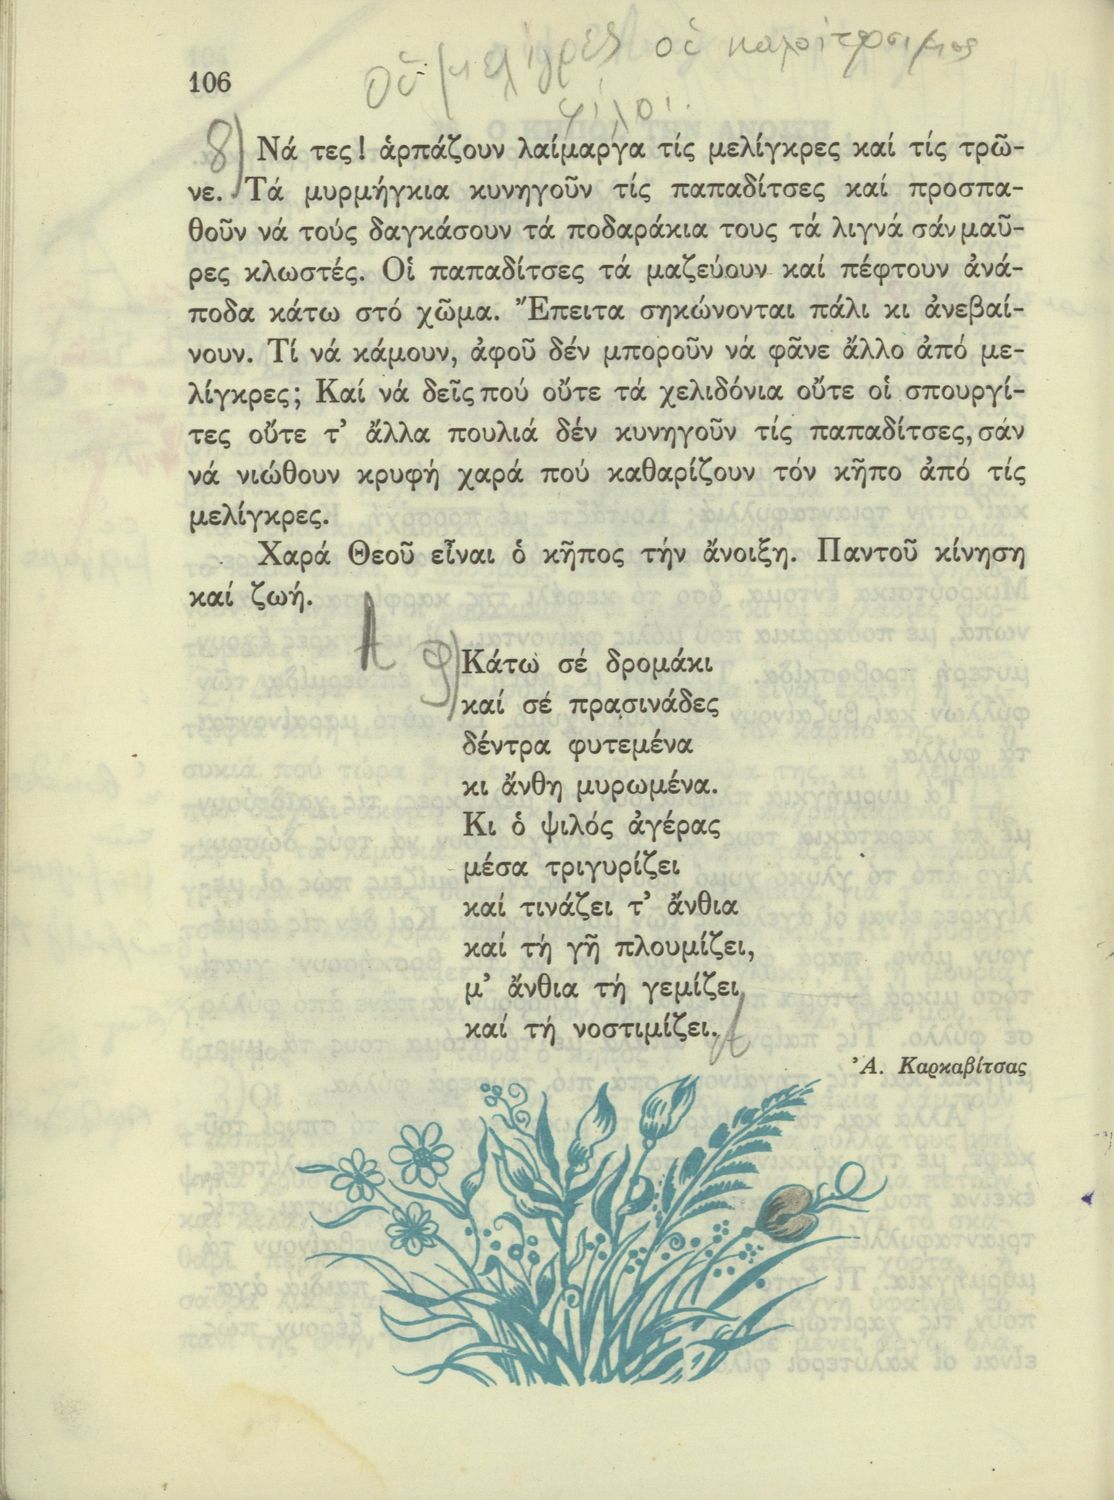 106
φίλοι.
8) Νά τες! ἁρπάζουν λαίμαργα τίς μελίγκρες καί τίς τρῶ-
νε. Τά μυρμήγκια κυνηγοῦν τίς παπαδίτσες καί προσπα-
θοῦν νά τούς δαγκάσουν τά ποδαράκια τους τά λιγνά σάν μαῦ-
ρες κλωστές. Οἱ παπαδίτσες τά μαζεύουν καί πέφτουν ἀνά-
ποδα κάτω στό χῶμα. Ἔπειτα σηκώνονται πάλι κι ἀνεβαί-
νουν. Τί νά κάμουν, ἀφοῦ δέν μποροῦν νά φᾶνε ἄλλο ἀπό με-
λίγκρες; Καί νά δεῖς πού οὔτε τά χελιδόνια οὔτε οἱ σπουργί-
τες οὔτε τ' ἄλλα πουλιά δέν κυνηγοῦν τίς παπαδίτσες, σάν
νά νιώθουν κρυφή χαρά πού καθαρίζουν τόν κῆπο ἀπό τίς
μελίγκρες.
Χαρά Θεοῦ εἶναι ὁ κῆπος τήν ἄνοιξη. Παντοῦ κίνηση
καί ζωή.
9) Κάτω σέ δρομάκι
καί σέ πρασινάδες
δέντρα φυτεμένα
κι ἄνθη μυρωμένα.
Κι ὁ ψιλός ἀγέρας
μέσα τριγυρίζει
καί τινάζει τ' ἄνθια
καί τή γῆ πλουμίζει,
μ' ἄνθια τή γεμίζει
καί τή νοστιμίζει.
Ἀ. Καρκαβίτσας